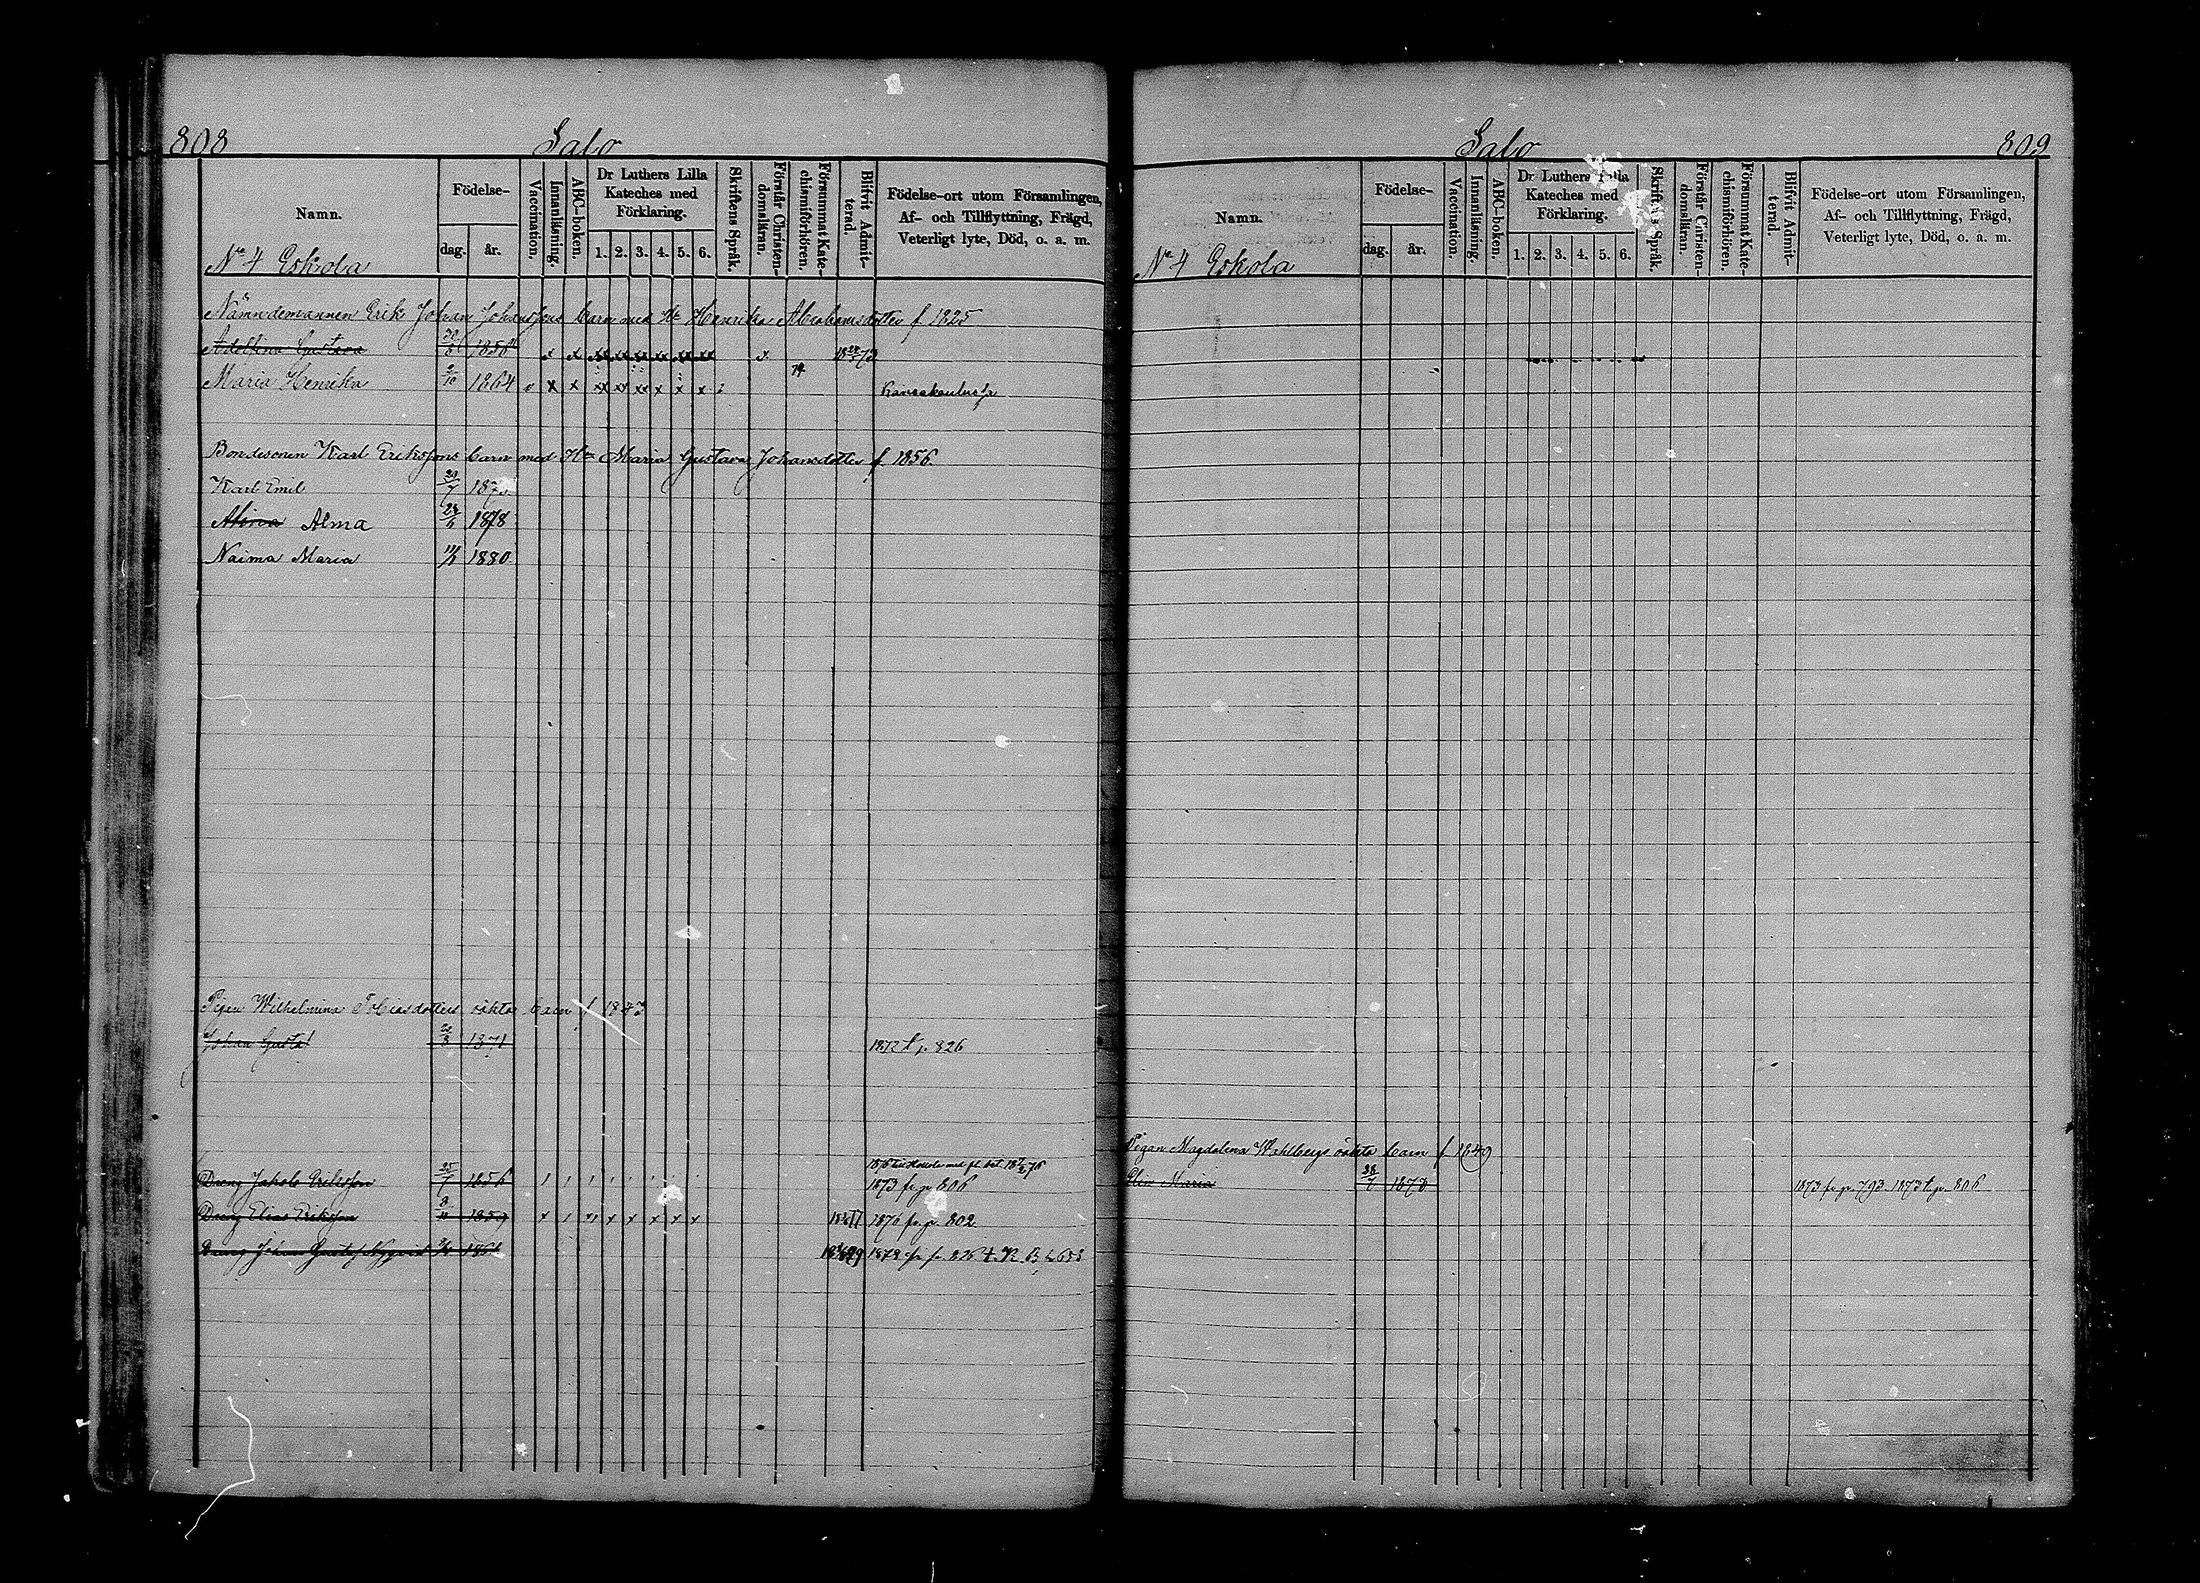 808 Salo
Namn. Födelse- dag. år. Vaccination. Innanläsning. ABC-boken. Dr Luthers Lilla Kateches med Förklaring. 1. 2. 3. 4. 5. 6. Skriftens Språk. Förstår Christen-domsläran. Försummat Kate-chismiförhören. Blifvit Admit-terad. Födelse-ort utom Församlingen, Af- och Tillflyttning, Frägd, Veterligt lyte, Död, o. a. m.
No 4 Eskola
Nämndemannen Erik Johan Johanssons barn med H. Henrika Abrahamsdotter f. 1825
Adelina Gustava 1856 x x xx xx xx xx xx xx x
Maria Henrika 2/10 1864 x x xx xx xx x x x Kansakoulussa
Bondesonen Karl Erikssons barn med H. Maria Gustava Johansdotter f. 1856.
Karl Emil
Alina Alma 1878
Naima Maria 1880.
Pigan Wilhelmina Tobiasdotters oäkta barn f
Johan Gustaf 1871 1872 t. p. 826
Dreng Jakob Eriksson 25/7 1856 1873 fr. p. 806
Dreng Elias Eriksson 1859 x x x x x x x 1876 fr. p. 802.
Dreng Johan Gustaf Nyqvist 1861 1879 fr. p. 826
Salo 809
Namn. Födelse- dag. år. Vaccination. Innanläsning. ABC-boken. Dr Luthers Lilla Kateches med Förklaring. 1. 2. 3. 4. 5. 6. Skriftens Språk. Förstår Christen-domsläran. Försummat Kate-chismiförhören. Blifvit Admit-terad. Födelse-ort utom Församlingen, Af- och Tillflyttning, Frägd, Veterligt lyte, Död, o. a. m.
No 4 Eskola
Pigan Magdalena Wahlbergs oäkta barn f 1849
Maria 1873 fr. p. 793. 1873 t. p. 806